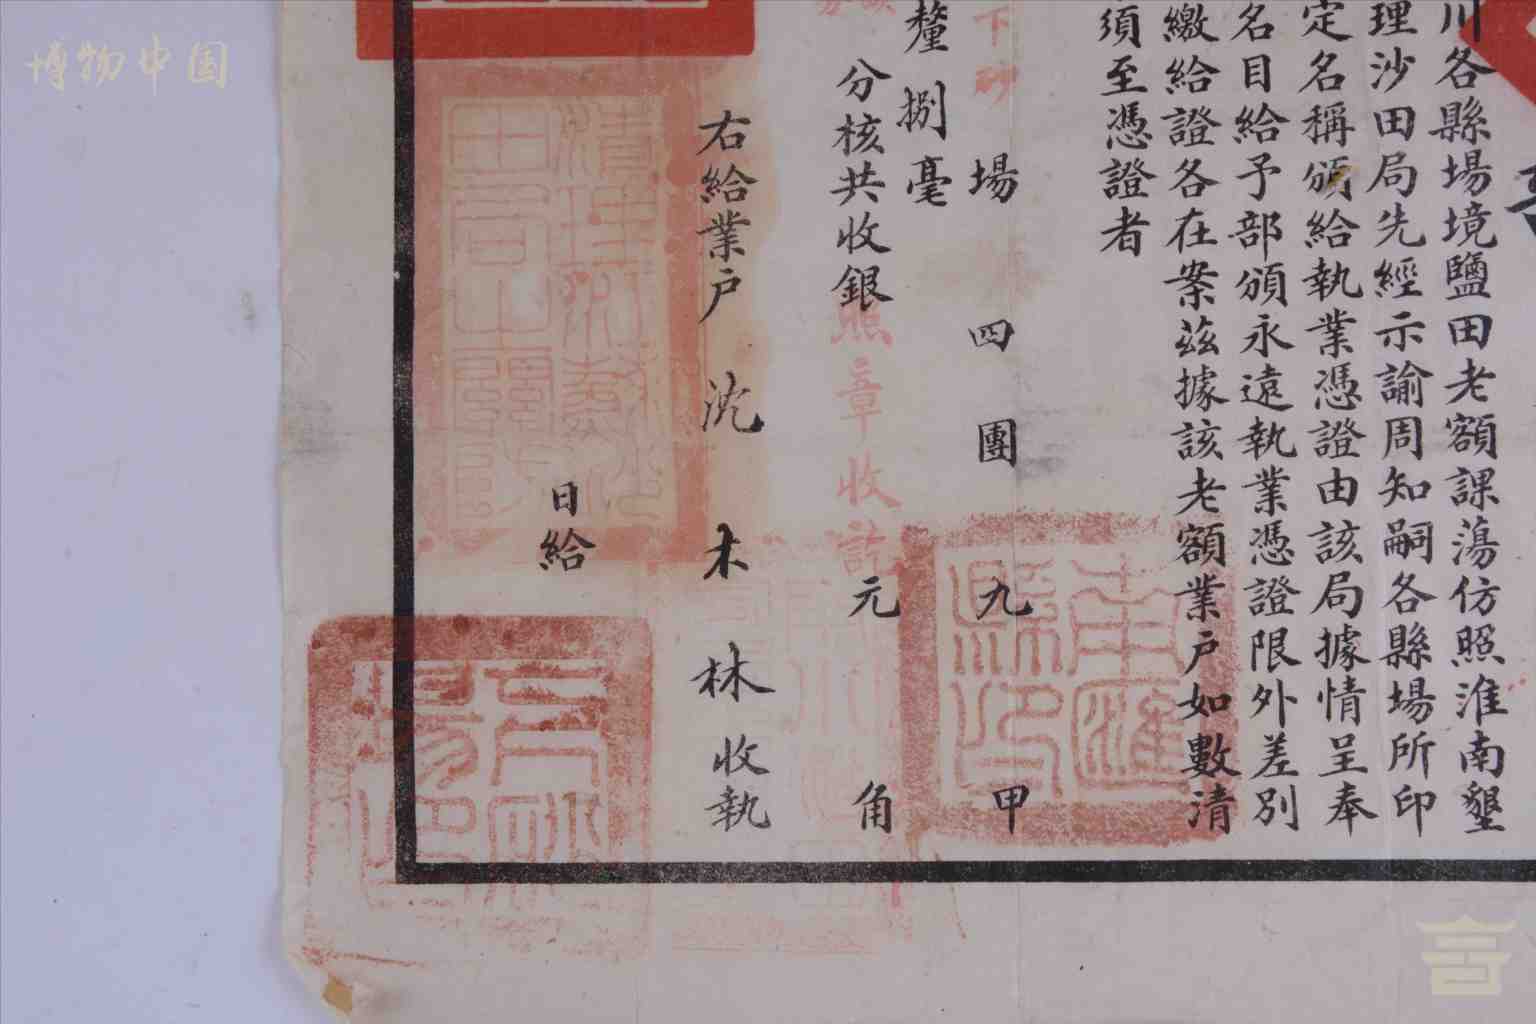 川各縣場境鹽田老額課蕩仿照淮南墾
理沙田局先經示諭周知嗣各縣場所印
定名稱頒給執業憑證由該局據情呈奉
名目給予部頒永遠執業憑證限外差別
繳給證各在案茲據該老額業戶如數清
須至憑證者
下砂場四團九甲
釐捌毫
分核共收銀元角
照章收訖
右給業戶沈木林收執
日給
南匯縣印
博物中国